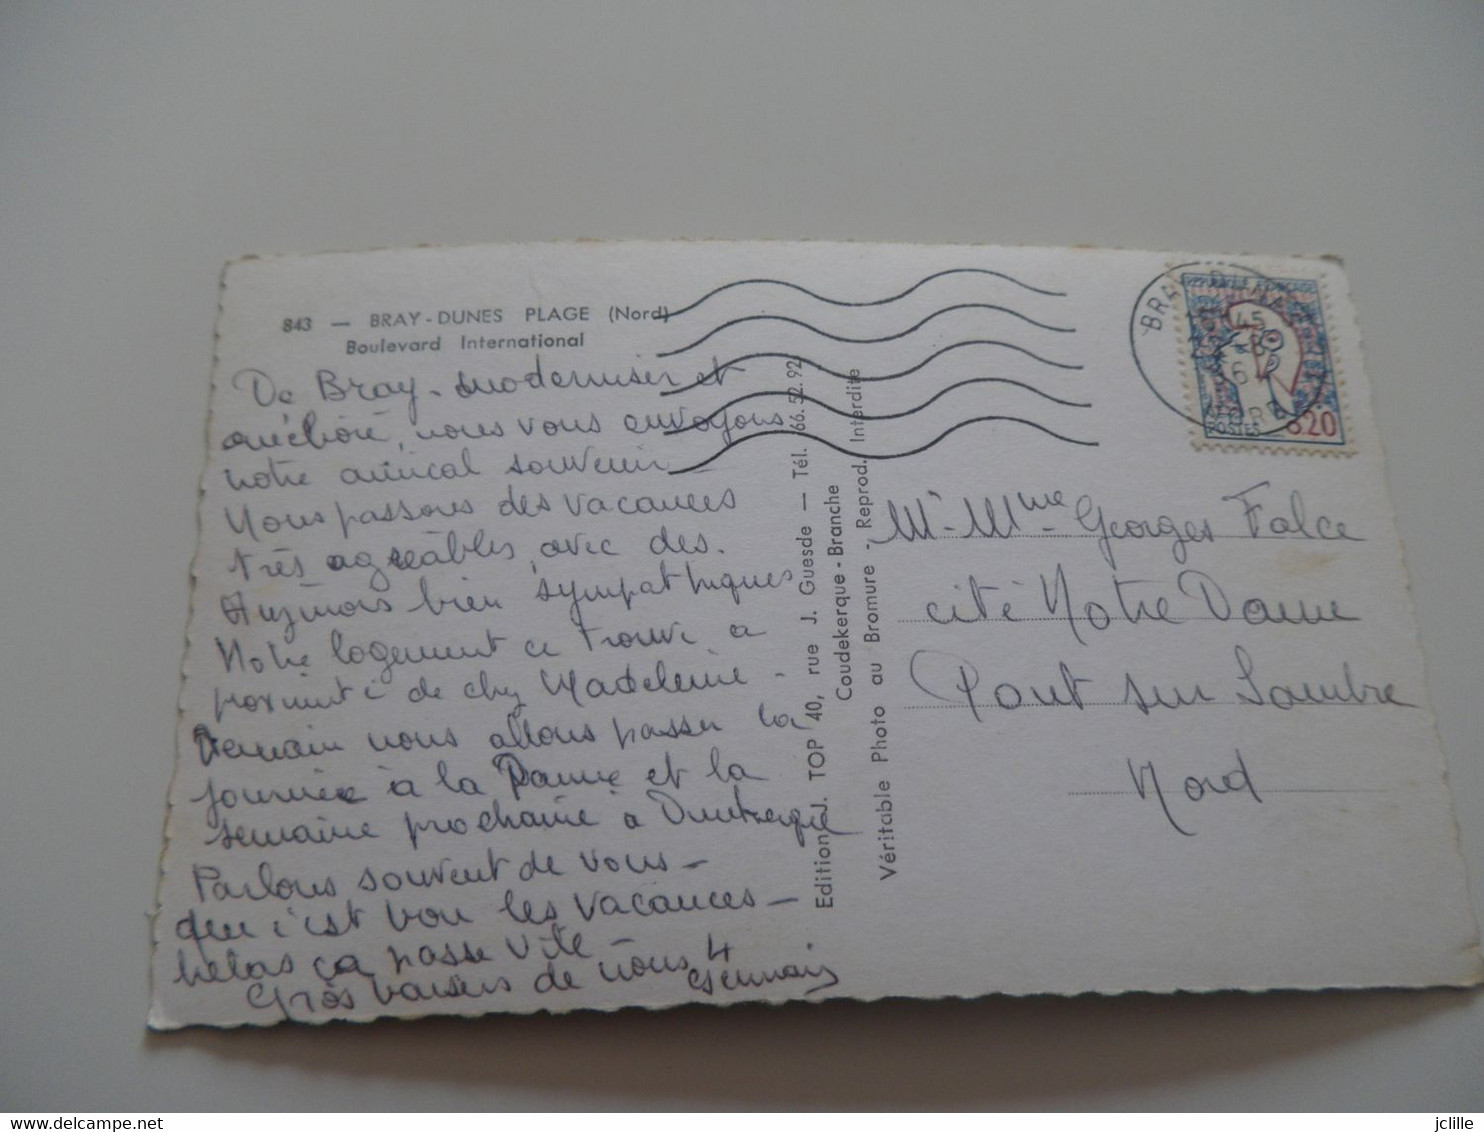 843 — BRAY-DUNES PLAGE (Nord)
Boulevard International
De Bray. moderniser et
amélioré, nous vous envoyons
notre amical souvenir
Nous passons des vacances
très agréables, avec des.
bien sympathiques
Notre logement ce trouve a
proximité de chez Madeleine -
Demain nous allons passer la
journée à la Panne et la
semaine prochaine à Dunkerque
Parlons souvent de vous -
que c'est bon les vacances -
helas ça passe vite -
Gros baisers de nous 4
Edition J. TOP 40, rue J. Guesde — Tél. 66.52.92
Coudekerque-Branche
Véritable Photo au Bromure - Reprod. Interdite
BRAY DUNES
45
REPUBLIQUE FRANÇAISE
POSTES
0.20
Mr Mme Georges Falce
cité Notre Dame
Pont sur Sambre
Nord
jclille